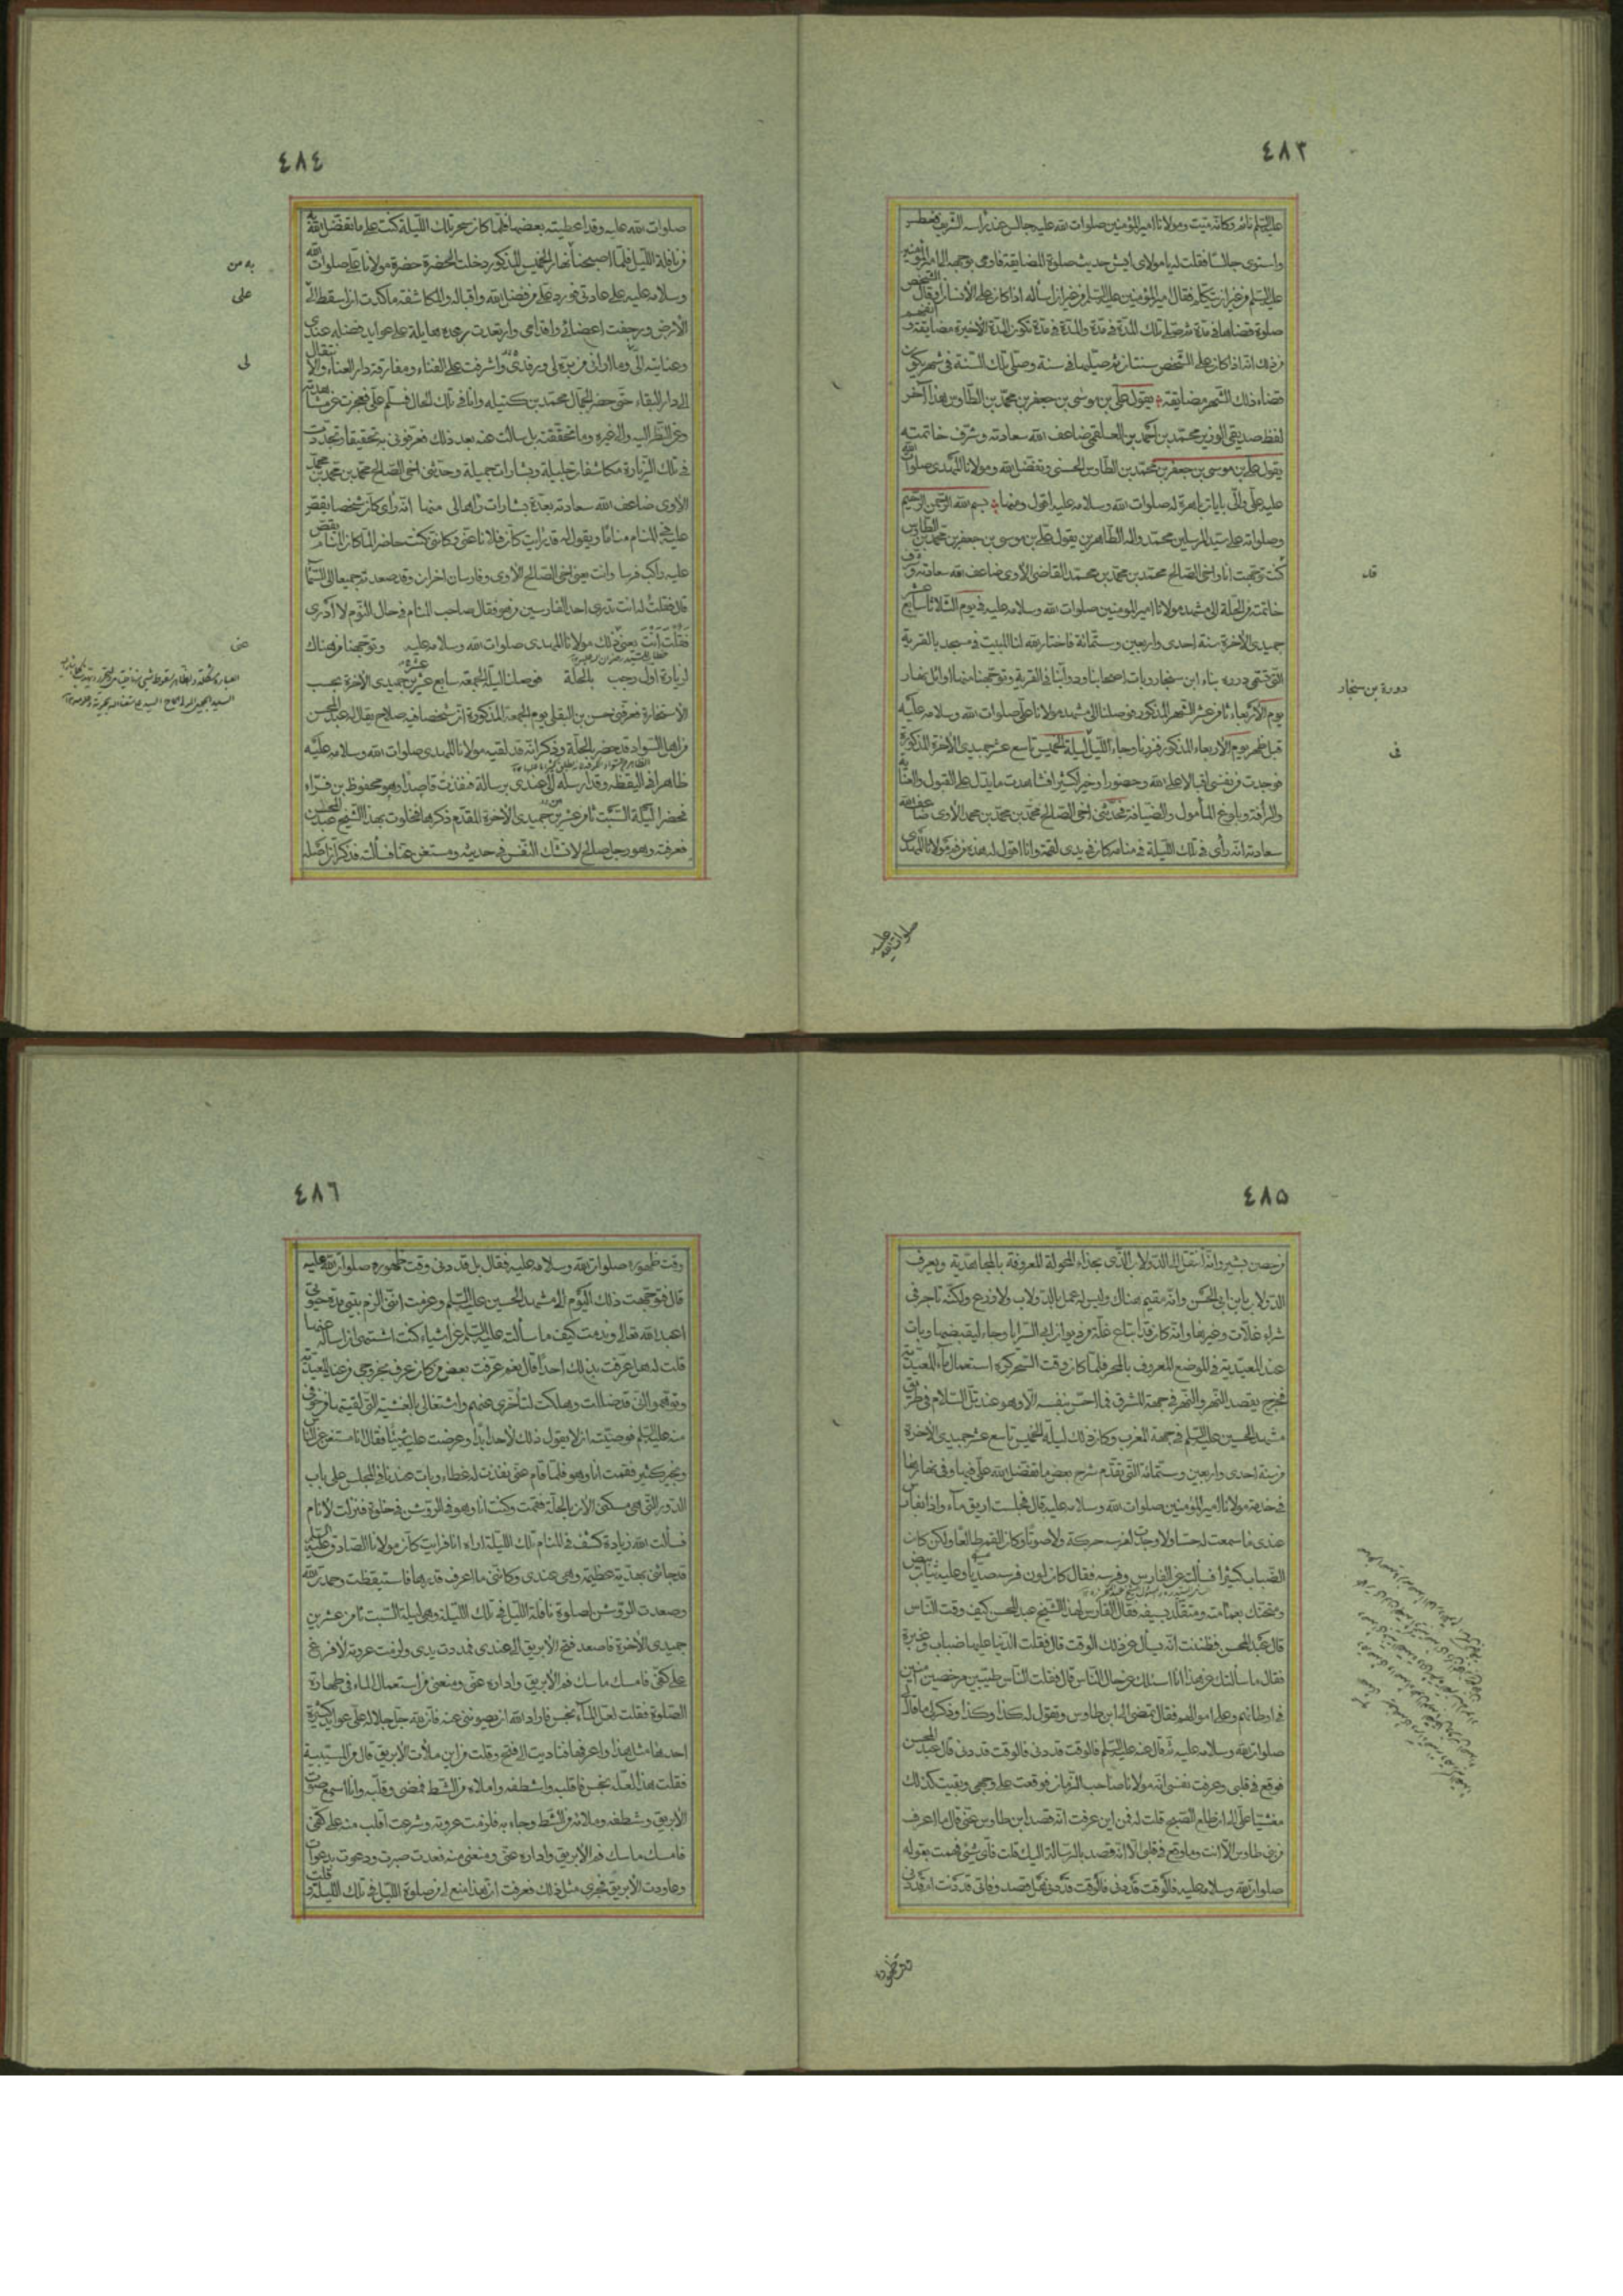 ٤٨٣
عليه السلم نائم وكانه ميت ومولانا امير المؤمنين صلوات الله عليه جالس عند راسه الشريف
واستوى جالسا فقلت له يا مولاى ايش حديث صلوة المضايقة فاومى بوجهه الى امير المؤمنين
عليه السلم من غير ان يتكلم فقال امير المؤمنين عليه السلم من غير ان اساله اذا كان على الانسان
صلوة قضاها فى مدة ثم صلى تلك المدة فى مدة والمدة فى مدة تكون المدة الاخيرة مضايقة
من ذلك انه اذا كان على الشخص سنتان ثم صليهما فى سنة وصلى تلك السنة فى شهر يكون
قضاء ذلك الشهر مضايقة يقول على بن موسى بن جعفر بن محمد بن الطاوس هذا آخر
لفظ صديقى الوزير محمد بن احمد بن العلقمى ضاعف الله سعادته وشرف خاتمته
يقول على بن موسى بن جعفر بن محمد بن الطاوس الحسنى وتفضل الله ومولانا المهدى صلوات الله
عليه على والى بايات باهرة له صلوات الله وسلامه عليه اقول ومنها بسم الله الرحمن الرحيم
وصلواته على سيد المرسلين محمد واله الطاهرين يقول على بن موسى بن جعفر بن محمد بن الطاوس
كنت توجهت انا واخى الصالح محمد بن محمد بن محمد القاضى الاوى ضاعف الله سعادته وشرف
خاتمته من الحلة الى مشهد مولانا امير المؤمنين صلوات الله وسلامه عليه فى يوم الثلاثا سابع عشر
جميدى الاخرة سنة احدى واربعين وستمائة فاختار الله لنا المبيت فى مسجد بالقرية
التى تسمى دوره بناء ابن سنجار وبات اصحابنا ودوابنا فى القرية وتوجهنا منها اوائل نهار
يوم الاربعاء ثامن عشر الشهر المذكور فوصلنا الى مشهد مولانا على صلوات الله وسلامه عليه
قبل ظهر يوم الاربعاء المذكور فزرنا وجاء الليل ليلة الخميس تاسع عشر جميدى الاخرة المذكورة
فوجدت من نفسى اقبالا على الله وحضورا وخيرا كثيرا فشاهدت ما يدل على القبول والعناية
والرافة وبلوغ المأمول والضيافة فحدثنى اخى الصالح محمد بن محمد بن محمد الاوى ضاعف الله
سعادته انه رأى فى تلك الليلة فى منامه كان فى يدى لقمة وانا اقول له هذه من فم مولانا المهدى
صلوات الله عليه
قد
دورة بن سنجار
فى
٤٨٤
صلوات الله عليه وقد اعطيته بعضها فلما كان سحر تلك الليلة كنت على ما تفضل الله به
من نافلة الليل فلما اصبحنا نهار الخميس المذكور دخلت الحضرة حضرة مولانا على صلوات الله
وسلامه عليه على عادتى فورد على من فضل الله واقباله والمكاشفة ما كدت ان اسقط الى
الارض ورجفت اعضائى واقدامى وارتعدت رعدة هايلة على عوايد فضله عندى
وعنايته الى وما ارانى من بره لى ورفدى واشرفت على الفناء ومفارقة دار العناء والانتقال
الى دار البقاء حتى حضر الجمال محمد بن كتيلة وانا فى تلك الحال فسلم على فعجزت عن مشاهدته
وعن النظر اليه والى غيره وما تحققته بل سالت عنه بعد ذلك فعرفونى به تحقيقا وتجددت
فى تلك الزيارة مكاشفات جليلة وبشارات جميلة وحدثنى اخى الصالح محمد بن محمد بن محمد
الاوى ضاعف الله سعادته بعدة بشارات رآها لى منها انه راى كان شخصا يقص
عليه فى المنام مناما ويقول له قد رايت كان فلانا عنى وكاننى كنت حاضرا لما كان المنام يقص
عليه راكب فرسا وانت معى اخى الصالح الاوى وفارسان اخران وقد صعدتم جميعا الى السماء
قال فقلت له انت تدرى احد الفارسين من هو فقال صاحب المنام فى حال النوم لا ادرى
فقلت انت يعنى ذلك مولانا المهدى صلوات الله وسلامه عليه وتوجهنا من هناك
لزيارة اول رجب بالحلة فوصلنا ليلة الجمعة سابع عشرين جميدى الاخرة بحسب
الاستخارة فعرفنى حسن بن البقلى يوم الجمعة المذكورة ان شخصا فيه صلاح يقال له عبد المحسن
من اهل السواد قد حضر بالحلة وذكر انه قد لقيه مولانا المهدى صلوات الله وسلامه عليه
ظاهرا فى اليقظة وقد ارسله الى عندى برسالة فنفذت قاصدا وهو محفوظ بن قراء
فحضرا ليلة السبت ثامن عشرين جميدى الاخرة المقدم ذكرها فخلوت بهذا الشيخ عبد المحسن
فعرفته وهو رجل صالح لا تشك النفس فى حديثه ومستغن عنا فسالته فذكر ان اصله
به من
على
لى
عنى
٤٨٥
من حصن بشير وانه انتقل الى الدولاب الذى بحذاء المحولة المعروفة بالمجاهدية ويعرف
الدولاب بابن ابى الحسن وانه مقيم هناك وليس له عمل بالدولاب ولا زرع ولكنه تاجر فى
شراء غلات وغيرها وانه كان قد ابتاع غلة من ديوان السرايا وجاء ليقبضها وبات
عند المعيدية فى الموضع المعروف بالمحر فلما كان وقت السحر كره استعمال ماء المعيدية
فخرج يقصد النهر والنهر فى جهة المشرق فما احس بنفسه الا وهو عند تل السلام فى طريق
مشهد الحسين عليه السلم فى جهة المغرب وكان ذلك ليلة الخميس تاسع عشر جميدى الاخرة
من سنة احدى واربعين وستمائة التى تقدم شرح بعض ما تفضل الله على فيها وفى نهارها
فى خدمة مولانا امير المؤمنين صلوات الله وسلامه عليه قال فجلست اريق ماء واذا بفارس
عندى ما سمعت له حسا ولا وجدت لفرسه حركة ولا صوتا وكان القمر طالعا ولكن كان
الضباب كثيرا فسالته عن الفارس وفرسه فقال كان لون فرسه صديا وعليه ثياب بيض
ومتحنك بعمامة ومتقلد بسيف فقال الفارس لهذا الشيخ عبد المحسن كيف وقت الناس
قال عبد المحسن فظننت انه يسأل عن ذلك الوقت قال فقلت الدنيا عليها ضباب وغبرة
فقال ما سالتك عن هذا انا اسئلك عن حال الناس قال فقلت الناس طيبين مرخصين آمنين
فى اوطانهم وعلى اموالهم فقال تمضى الى ابن طاوس وتقول له كذا وكذا وذكر لى ما قال
صلوات الله وسلامه عليه ثم قال عنه عليه السلم فالوقت قد دنى فالوقت قد دنى قال عبد المحسن
فوقع فى قلبى وعرفت نفسى انه مولانا صاحب الزمان فوقعت على وجهى وبقيت كذلك
مغشيا على الى ان طلع الصبح قلت له فمن اين عرفت انه قصد ابن طاوس عنى قال ما اعرف
من بنى طاوس الا انت وما وقع فى قلبى الا انه قصد بالرسالة اليك قلت فاى شئ فهمت بقوله
صلوات الله وسلامه عليه فالوقت قد دنى فالوقت قد دنى هل قصد وفاتى قد دنت ام قد دنى
وقت ظهوره
٤٨٦
وقت ظهوره صلوات الله وسلامه عليه فقال بل قد دنى وقت ظهوره صلوات الله عليه
قال فتوجهت ذلك اليوم الى مشهد الحسين عليه السلم وعزمت اننى الزم بيتى مدة حيوتى
اعبد الله تعالى وندمت كيف ما سالته عليه السلم عن اشياء كنت اشتهى ان اساله عنها
قلت له هل عرفت بذلك احدا قال نعم عرفت بعض من كان عرف بخروجى من عند المعيدية
وتوهموا انى قد ضللت وهلكت لتأخرى عنهم واشتغالى بالغشية التى لقيتها من خوفى
منه عليه السلم فوصيته ان لا يقول ذلك لاحد ابدا وعرضت عليه شيئا فقال انا مستغن عن الناس
وبخير كثير فقمت انا وهو فلما قام عنى نفذت له غطاء وبات عندنا فى المجلس على باب
الدور التى هى مسكنى الان بالحلة فقمت وكنت انا وهو فى الروشن فى خلوة فنزلت لانام
فسالت الله زيادة كشف فى المنام تلك الليلة اراه انا فرايت كان مولانا الصادق عليه السلم
قد جائنى بهدية عظيمة وهى عندى وكاننى ما اعرف قدرها فاستيقظت وحمدت الله
وصعدت الروشن لصلوة نافلة الليل فى تلك الليلة وهى ليلة السبت ثامن عشرين
جميدى الاخرة فاصعد فتح الابريق الى عندى فمددت يدى ولزمت عروته لافرغ
على كفى فامسك ماسك فم الابريق واداره عنى ومنعنى من استعمال الماء فى طهارة
الصلوة فقلت لعل الماء نجس فاراد الله ان يصوننى عنه فان لله جل جلاله على عوايد كثيرة
احدها مثل هذا واعرفها فناديت الى فتح وقلت من اين ملأت الابريق قال من المسببة
فقلت هذا لعله نجس فاقلبه واشطفه واملاه من الشط فمضى وقلبه وانا اسمع صوت
الابريق وشطفه وملائه من الشط وجاء به فلزمت عروته وشرعت اقلب منه على كفى
فامسك ماسك فم الابريق واداره عنى ومنعنى منه فعدت صبرت ودعوت بدعوات
وعاودت الابريق فجرى مثل ذلك فعرفت ان هذا منع لى من صلوة الليل فى تلك الليلة وقلت